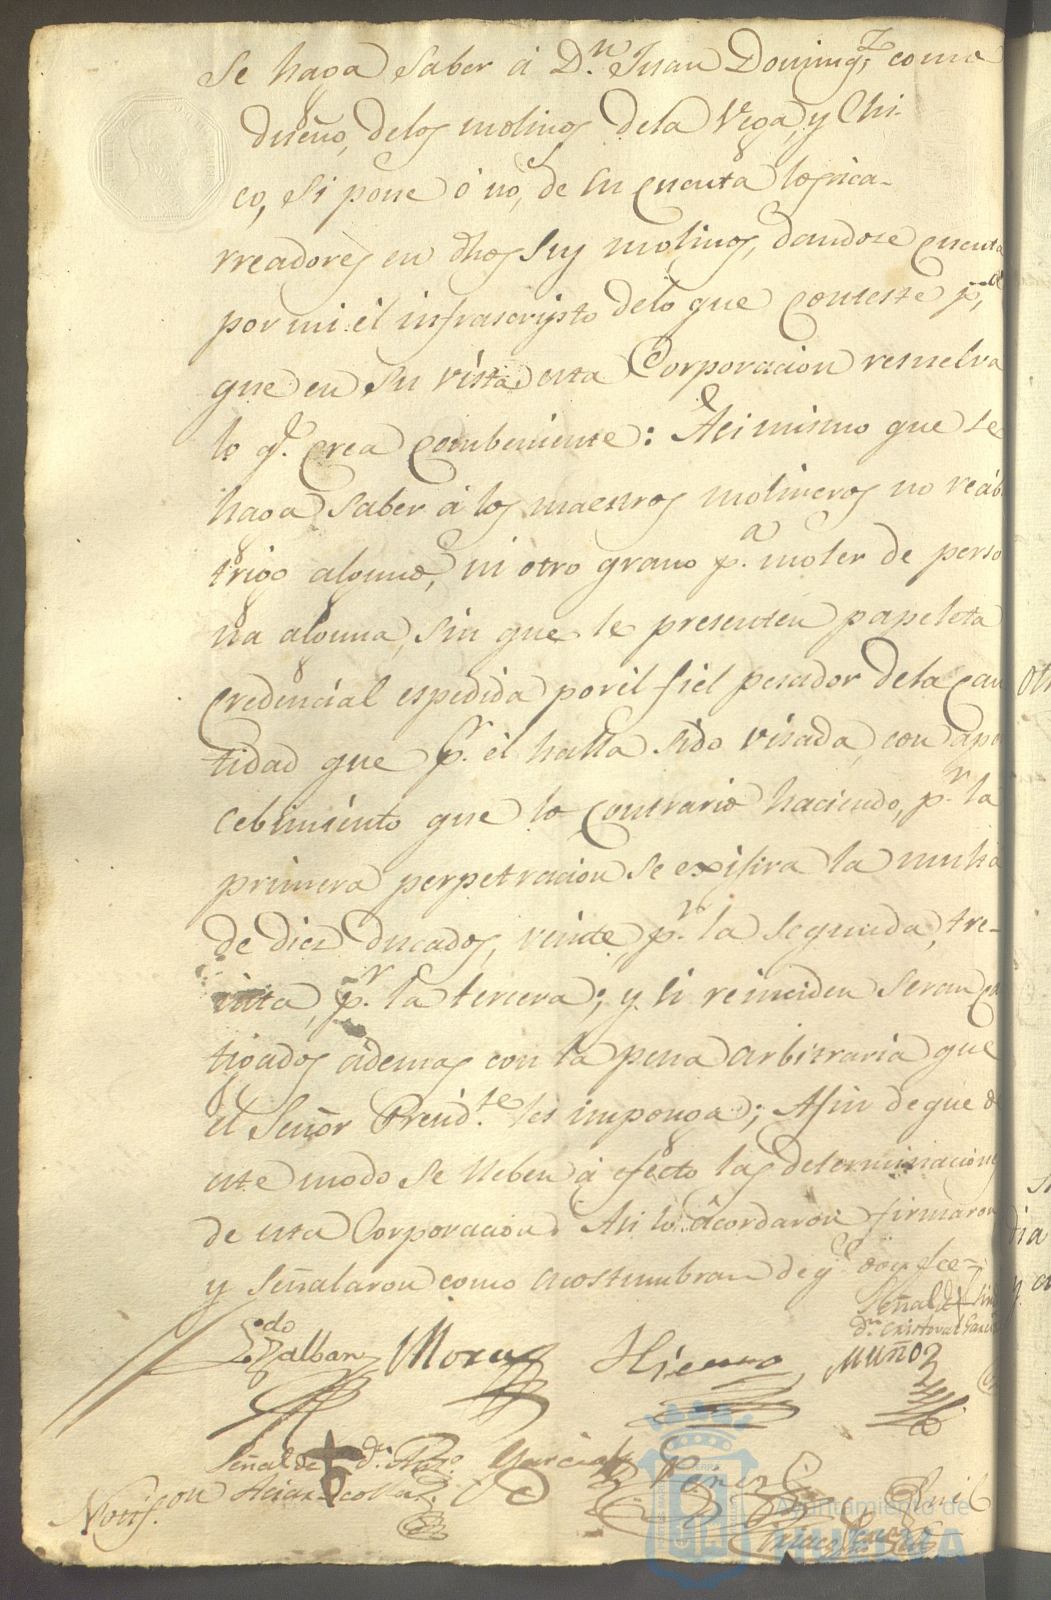 Se haga saber á D.n Juan Doming.z como
dueño, delos molinos dela Vega, y Chi-
co, si pone ó no, de su cuenta los aca-
rreadores en dhos sus molinos, dandose cuenta
por mi él infrascripto delo que conteste p.a
que en su vista esta Corporacion resuelva
lo q.e crea combeniente: Asi mismo que se
haga saber á los maestros molineros no recib
trigo alguno, ni otro grano p.a moler de perso
na alguna, sin que le presenten papeleta
credencial espedida por el fiel pesador dela can
tidad que p.r él halla sido visada, con aper
cebimiento que lo contrario haciendo, p.r la
primera perpetracion se exijira la multa
de diez ducados, veinte p.r la segunda, tre-
inta, p.r la tercera; y si reinciden seran cas
tigados ádemas con la pena arbitraria que
el Señor Presid.te les imponga; Afin de que de
este modo se lleben á efecto las determinaciones
de esta Corporacion. Asi lo acordaron firmaron
y señalaron como acostumbran de q.e doy fee=
Señal de + Sind
d.n Cristoval Garcia
Zalbar Mora Hierro Muñoz
Señal de + d.n
Garcia Perez
Notif.on
Ayuntamiento de
HUELVA